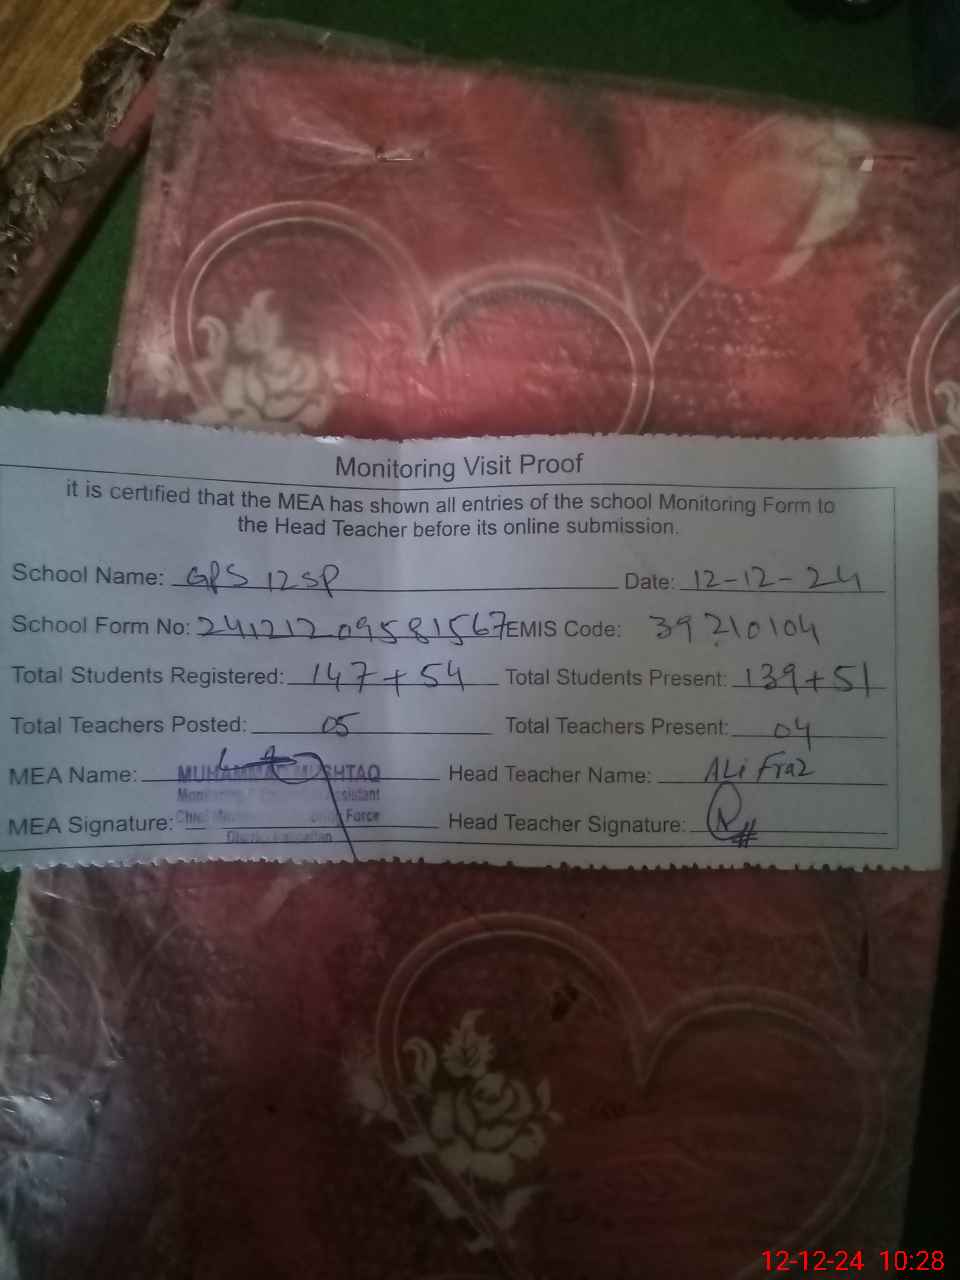 Monitoring Visit Proof
it is certified that the MEA has shown all entries of the school Monitoring Form to
the Head Teacher before its online submission.
School Name: GPS 12SP Date: 12-12-24
School Form No: 24121209581567 EMIS Code: 39210104
Total Students Registered: 147+54 Total Students Present: 139+51
Total Teachers Posted: 05 Total Teachers Present: 04
MEA Name: MUHAMMAD MUSHTAQ Head Teacher Name: ALi Fraz
Assistant
Force
MEA Signature: Head Teacher Signature:
12-12-24 10:28